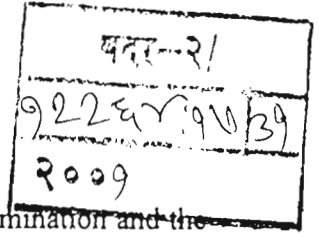 बदर-२/
१२२६४ १७ ३१
२००१
mination and the